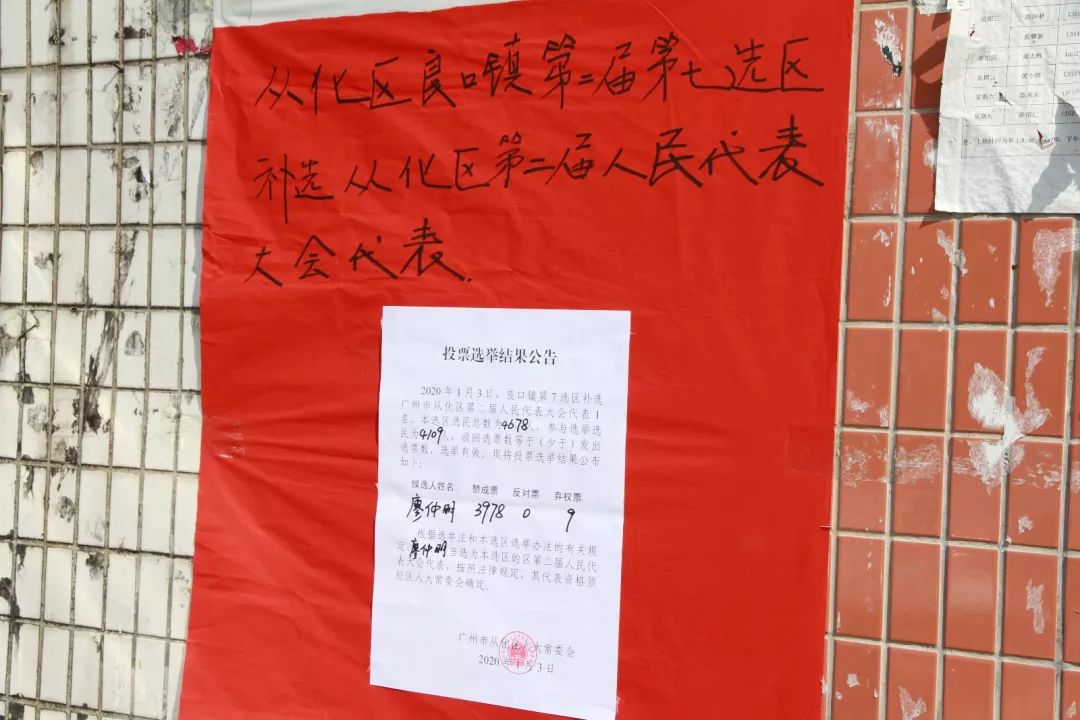 从化区良口镇第二届第七选区
补选从化区第二届人民代表
大会代表.
投票选举结果公告
2020年1月3日，良口镇第7选区补选
广州市从化区第二届人民代表大会代表1
名。本选区选民总数为4678人，参与选举选
民为4109人，收回选票数等于（少于）发出
选票数，选举有效。现将投票选举结果公布
如下：
候选人姓名 赞成票 反对票 弃权票
廖仲明 3978 0 9
根据选举法和本选区选举办法的有关规
定，廖仲明当选为本选区的区第二届人民代
表大会代表。按照法律规定，其代表资格须
经区人大常委会确定。
广州市从化区人大常委会
2020年1月3日
星期四
星期六